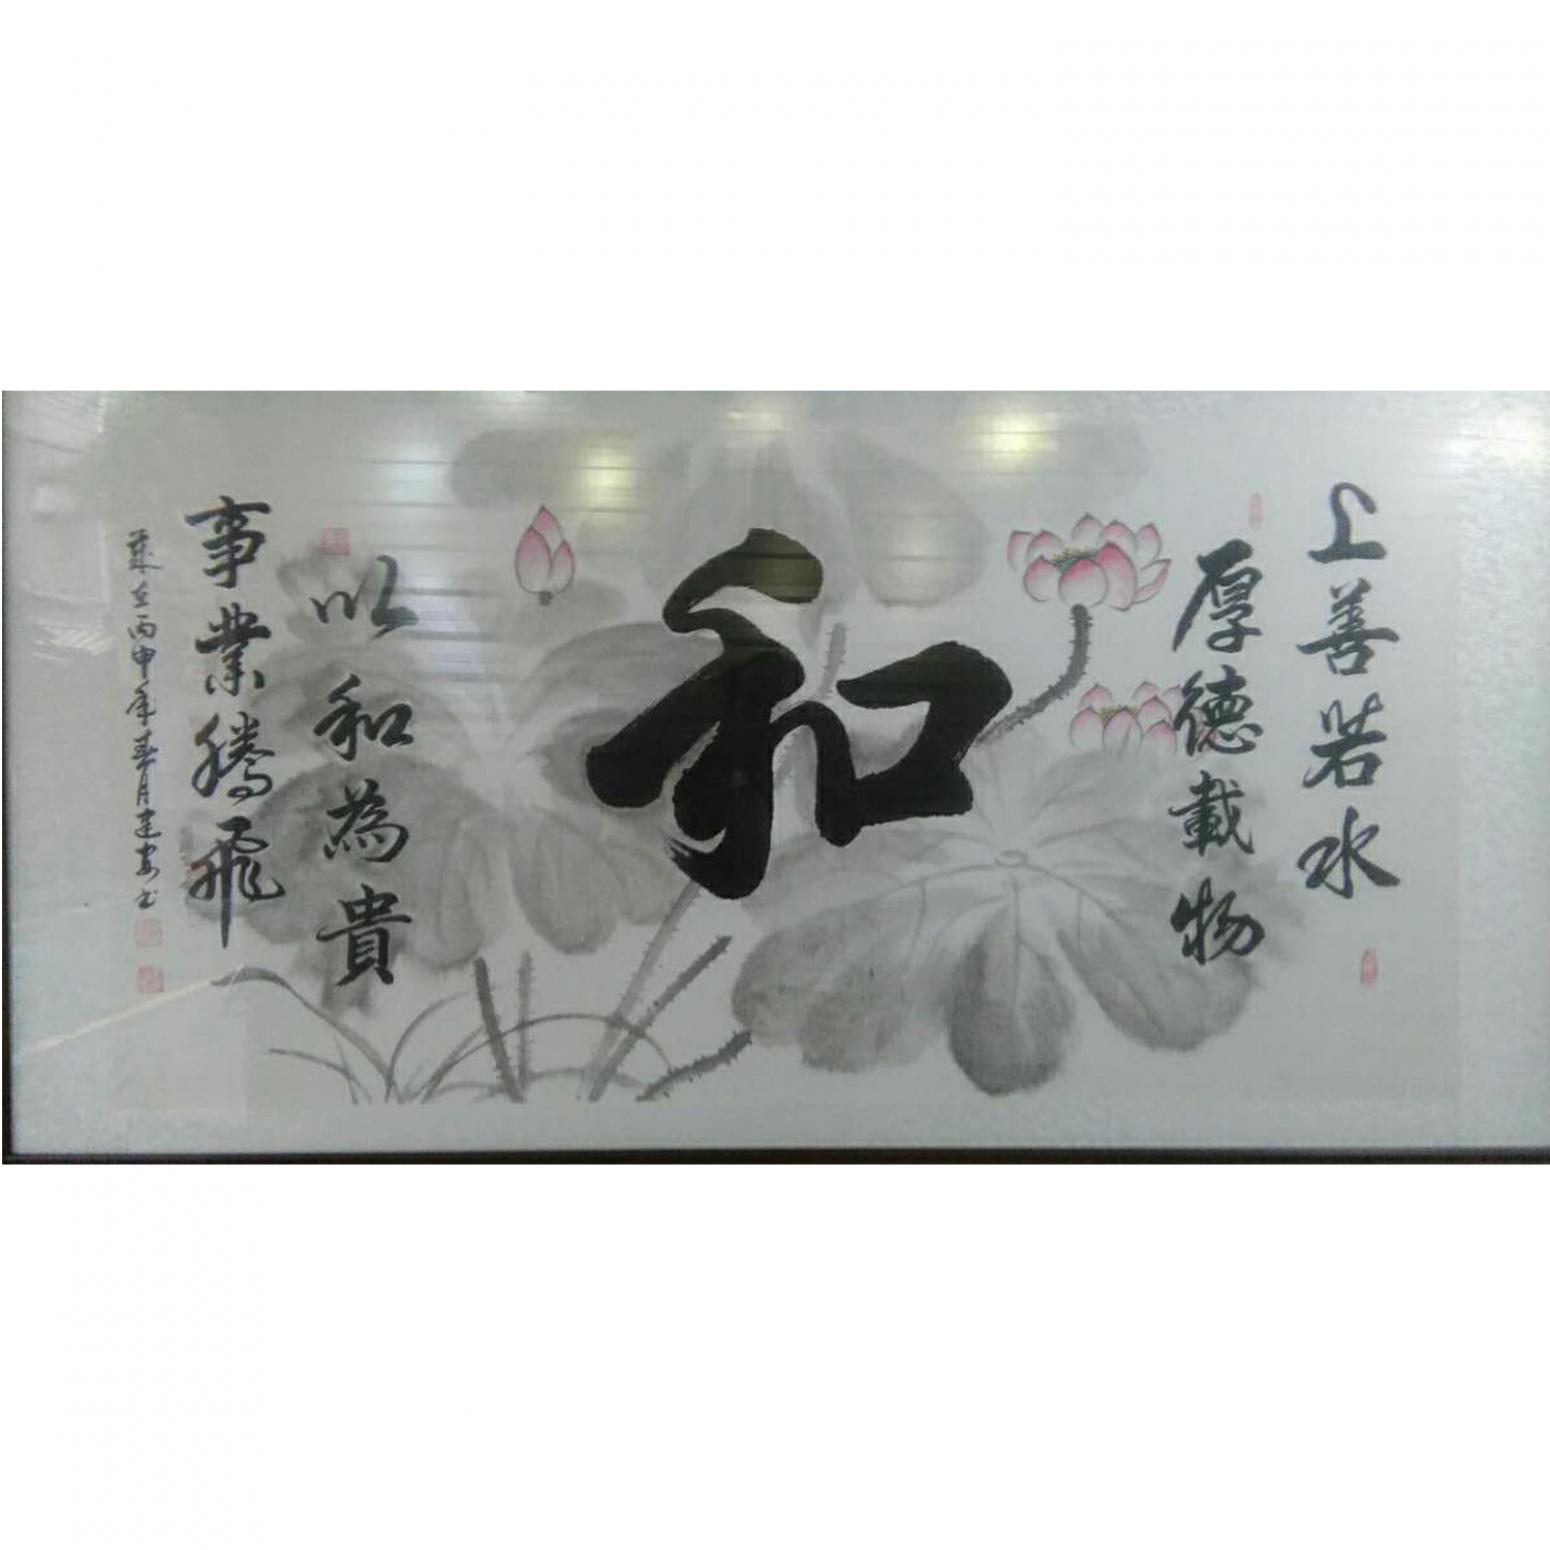 上善若水
厚德載物
和
以和為貴
事業騰飛
歲在丙申年春月建安书